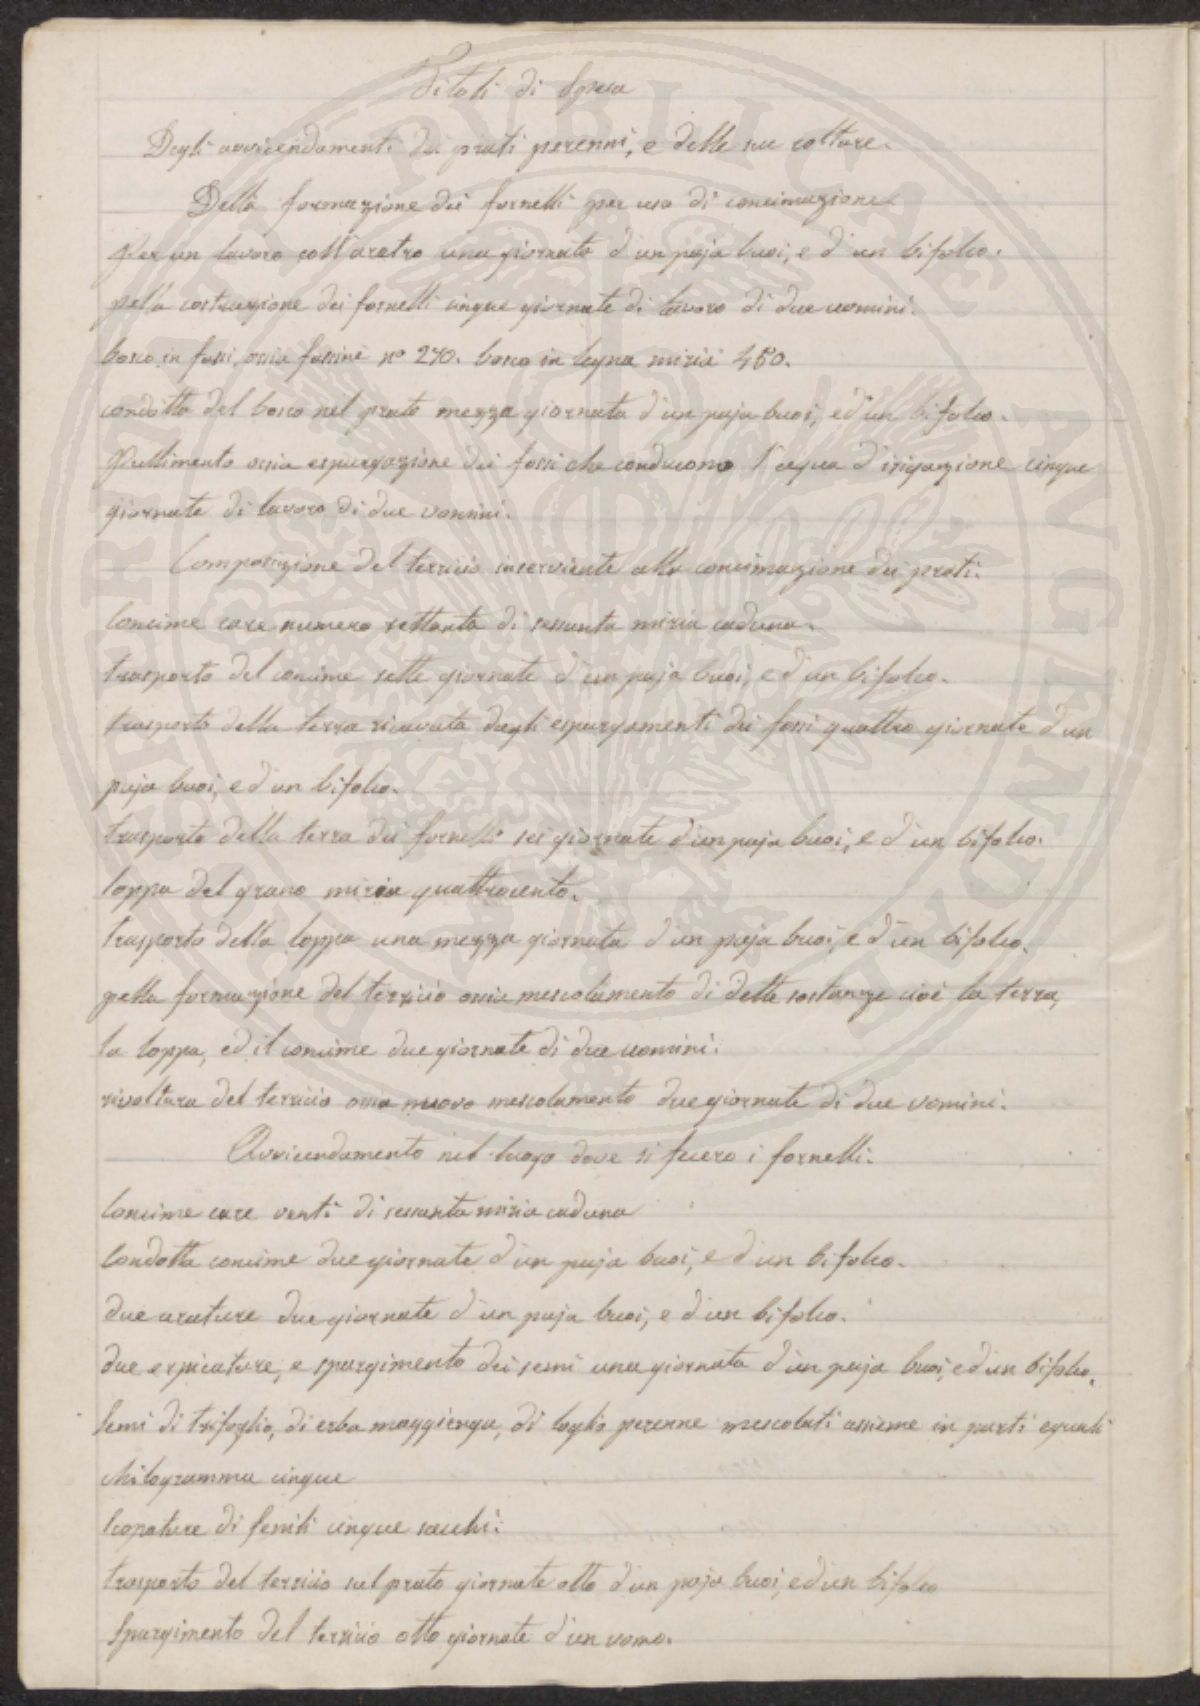 Titoli di Spesa
Degli avvicendamenti dei prati perenni, e delle sue colture.
Della formazione dei fornelli per uso di concimazione.
Per un lavoro coll'aratro una giornata d'un paja buoi, e d'un bifolco.
pella costruzione dei fornelli cinque giornate di lavoro di due uomini.
bosco in fassi, ossia fassine n° 270. bosco in legna miria 450.
condotta del bosco nel prato mezza giornata d'un paja buoi, e d'un bifolco.
Pullimento ossia espurgazione dei fossi che conducono l'acqua d'irigazione cinque
giornate di lavoro di due uomini.
Composizione del terricio inserviente alla concimazione dei prati.
Concime care numero settanta di sessanta miria caduna.
trasporto del concime sette giornate d'un paja buoi, e d'un bifolco.
trasporto della terra ricavata dagli espurgamenti dei fossi quattro giornate d'un
paja buoi, e d'un bifolco.
trasporto della terra dei fornelli sei giornate d'un paja buoi, e d'un bifolco.
loppa del grano miria quattrocento.
trasporto della loppa una mezza giornata d'un paja buoi, e d'un bifolco.
pella formazione del terricio ossia mescolamento di dette sostanze cioè la terra,
la loppa, ed il concime due giornate di due uomini.
rivoltura del terricio ossia nuovo mescolamento due giornate di due uomini.
Avvicendamento nel luogo dove si fecero i fornelli.
Concime care venti di sessanta miria caduna
Condotta concime due giornate d'un paja buoi, e d'un bifolco.
due arature due giornate d'un paja buoi, e d'un bifolco.
due erpicature, e spargimento dei semi una giornata d'un paja buoi, e d'un bifolco.
Semi di trifoglio, di erba maggienga, di loglio perenne mescolati assieme in parti eguali
chilogramma cinque
Scopature di fenili cinque sacchi.
trasporto del terricio sul prato giornate otto d'un paja buoi, e d'un bifolco
Spargimento del terricio otto giornate d'un uomo.